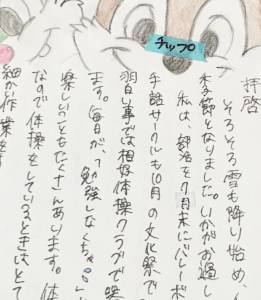 チップ
拝啓
そろそろ雪も降り始め、
季節となりました。いかがお過し
私は、部活を7月末にバレーボ
手話サークルも10月の文化祭で
習い事では相好体操クラブで
ます。毎日が、「勉強しなくちゃ…」
楽しいこともたくさんあります。体
なので体操をしているときはとて
細か作業を